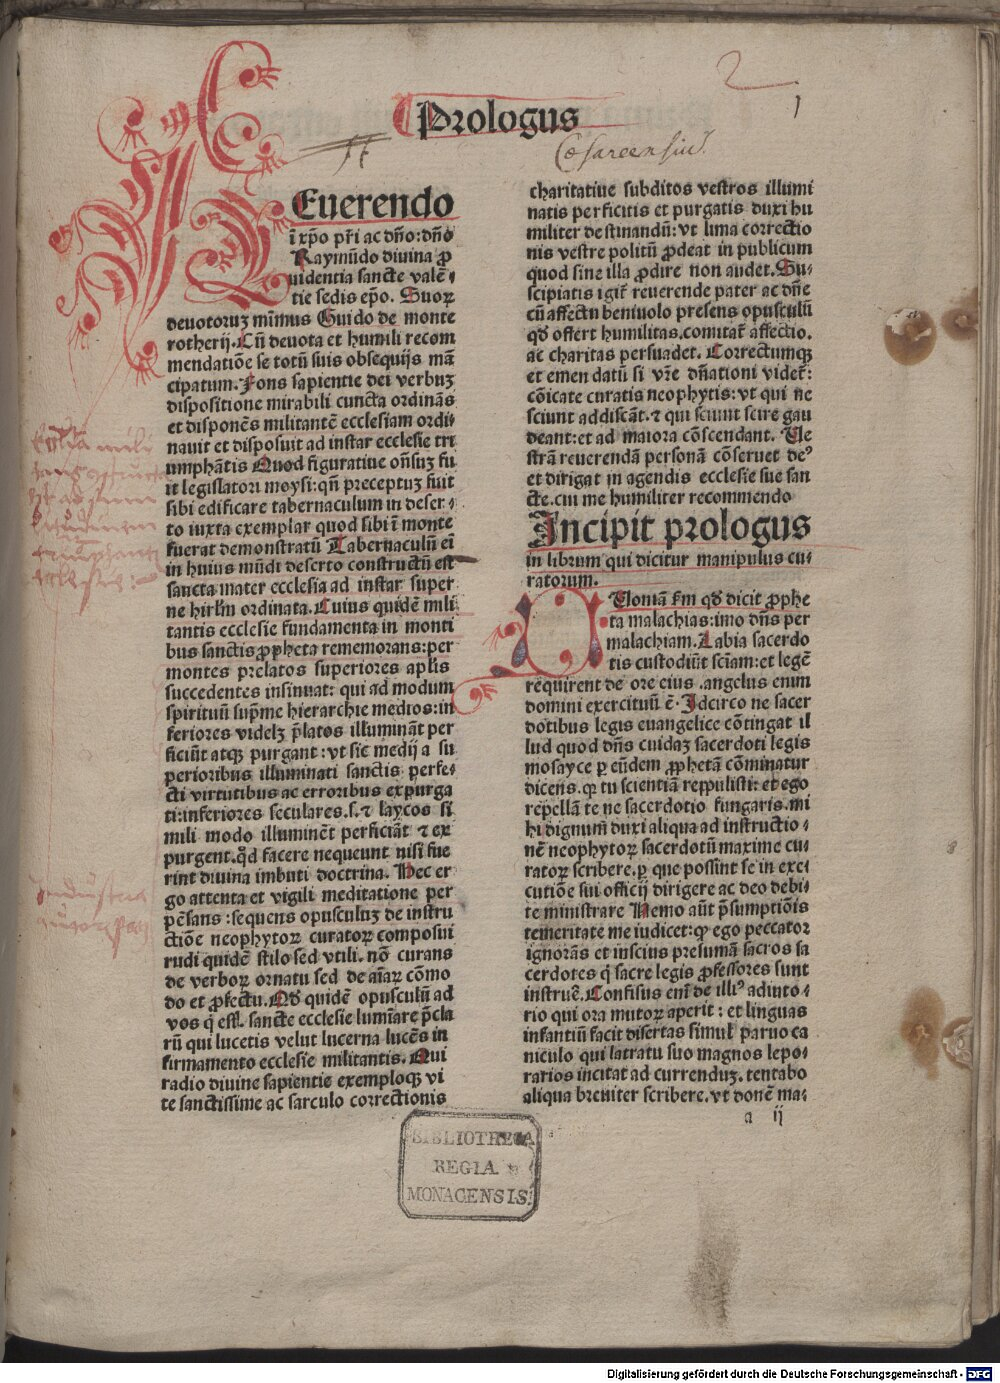 Prologus
2
1
Euerendo
ī xp̄o pr̄i ac dn̄o: dn̄o
Raymūdo diuina ꝓ
uidentia sancte valē⸗
tie sedis ep̄o. Suoꝝ
deuotoruꝫ mīmus Guido de monte
rotherij. Cū deuota et humili recom
mendatiōe se totū suis obsequijs mā
cipatum. Fons sapientie dei verbuꝫ
dispositione mirabili cuncta ordinās
et disponēs militantē ecclesiam ordi⸗
nauit et disposuit ad instar ecclesie tri
umphātis Quod figuratiue on̄suꝫ fu
it legislatori moysi: qn̄ preceptuꝫ fuit
sibi edificare tabernaculum in deser⸗
to iuxta exemplar quod sibi ī monte
fuerat demonstratū Tabernaculū eī
in huius mūdi deserto constructū est
sancta mater ecclesia ad instar super
ne hirl̄m ordinata. Cuius quidē mili
tantis ecclesie fundamenta in monti
bus sanctis ꝓpheta rememorans: per
montes prelatos superiores apl̄is
succedentes insinuat: qui ad modum
spirituū sup̄me hierarchie medios: in
feriores videlꝫ p̄latos illumināt per
ficiūt atqꝫ purgant: vt sic medij a su
perioribus illuminati sanctis perfe⸗
cti virtutibus ac erroribus expurga
ti: inferiores seculares .s. ⁊ laycos si
mili modo illuminēt perficiāt ⁊ ex
purgent. qd̄ facere nequeunt nisi fue
rint diuina imbuti doctrina. Hec er
go attenta et vigili meditatione per
pēsans: sequens opusculuꝫ de instru
ctiōe neophytoꝝ curatoꝝ composui
rudi quidē stilo sed vtili. nō curans
de verboꝝ ornatu sed de aīaꝝ cōmo
do et ꝓfectu. Qd̄ quidē opusculū ad
vos q̄ estl̄ sancte ecclesie lumīare p̄cla
rū qui lucetis velut lucerna lucēs in
firmamento ecclesie militantis. Qui
radio diuine sapientie exemploqꝫ vi
te sanctissime ac sarculo correctionis
charitatiue subditos vestros illumi
natis perficitis et purgatis duxi hu
militer destinandū: vt lima correctio
nis vestre politū ꝓdeat in publicum
quod sine illa ꝓdire non audet. Su⸗
scipiatis igit̄ reuerende pater ac dn̄e
cū affectu beniuolo presens opusculū
qd̄ offert humilitas. comitat̄ affectio.
ac charitas persuadet. Correctumqꝫ
et emendatū si vr̄e dn̄ationi videt̄:
cōicate curatis neophytis: vt qui ne
sciunt addiscāt. ⁊ qui sciunt scire gau
deant: et ad maiora cōscendant. Ve
strā reuerendā personā cōseruet deꝰ
et dirigat in agendis ecclesie sue san
cte. cui me humiliter recommendo
Incipit prologus
in librum qui dicitur manipulus cu⸗
ratorum.
Qloniā ẜm qd̄ dicit ꝓphe
ta malachias: imo dn̄s per
malachiam. Labia sacerdo
tis custodiūt scīam: et legē
requirent de ore eius .angelus enim
domini exercituū ē. Idcirco ne sacer
dotibus legis euangelice cōtingat il
lud quod dn̄s cuidaꝫ sacerdoti legis
mosayce ꝑ eūdem ꝓphetā cōminatur
dicens. qꝫ tu scientiā reppulisti: et ego
repellā te ne sacerdotio fungaris. mi
hi dignum duxi aliqua ad instructio⸗
nē neophytoꝝ sacerdotū maxime cu⸗
ratoꝝ scribere. ꝑ que possint se in exe⸗
cutiōe sui officij dirigere ac deo debi⸗
te ministrare Nemo aūt p̄sumptiōis
temeritate me iudicet: qꝫ ego peccator
ignorās et inscius presumā sacros sa
cerdotes q̄ sacre legis ꝓfessores sunt
instruē. Confisus enī de illiꝰ adiuto⸗
rio qui ora mutoꝝ aperit: et linguas
infantiū facit disertas simul paruo ca
niculo qui latratu suo magnos lepo⸗
rarios incitat ad currenduꝫ. tentabo
aliqua breuiter scribere. vt donē ma⸗
a ij
BIBLIOTHECA
REGIA
MONACENSIS.
Digitalisierung gefördert durch die Deutsche Forschungsgemeinschaft - DFG